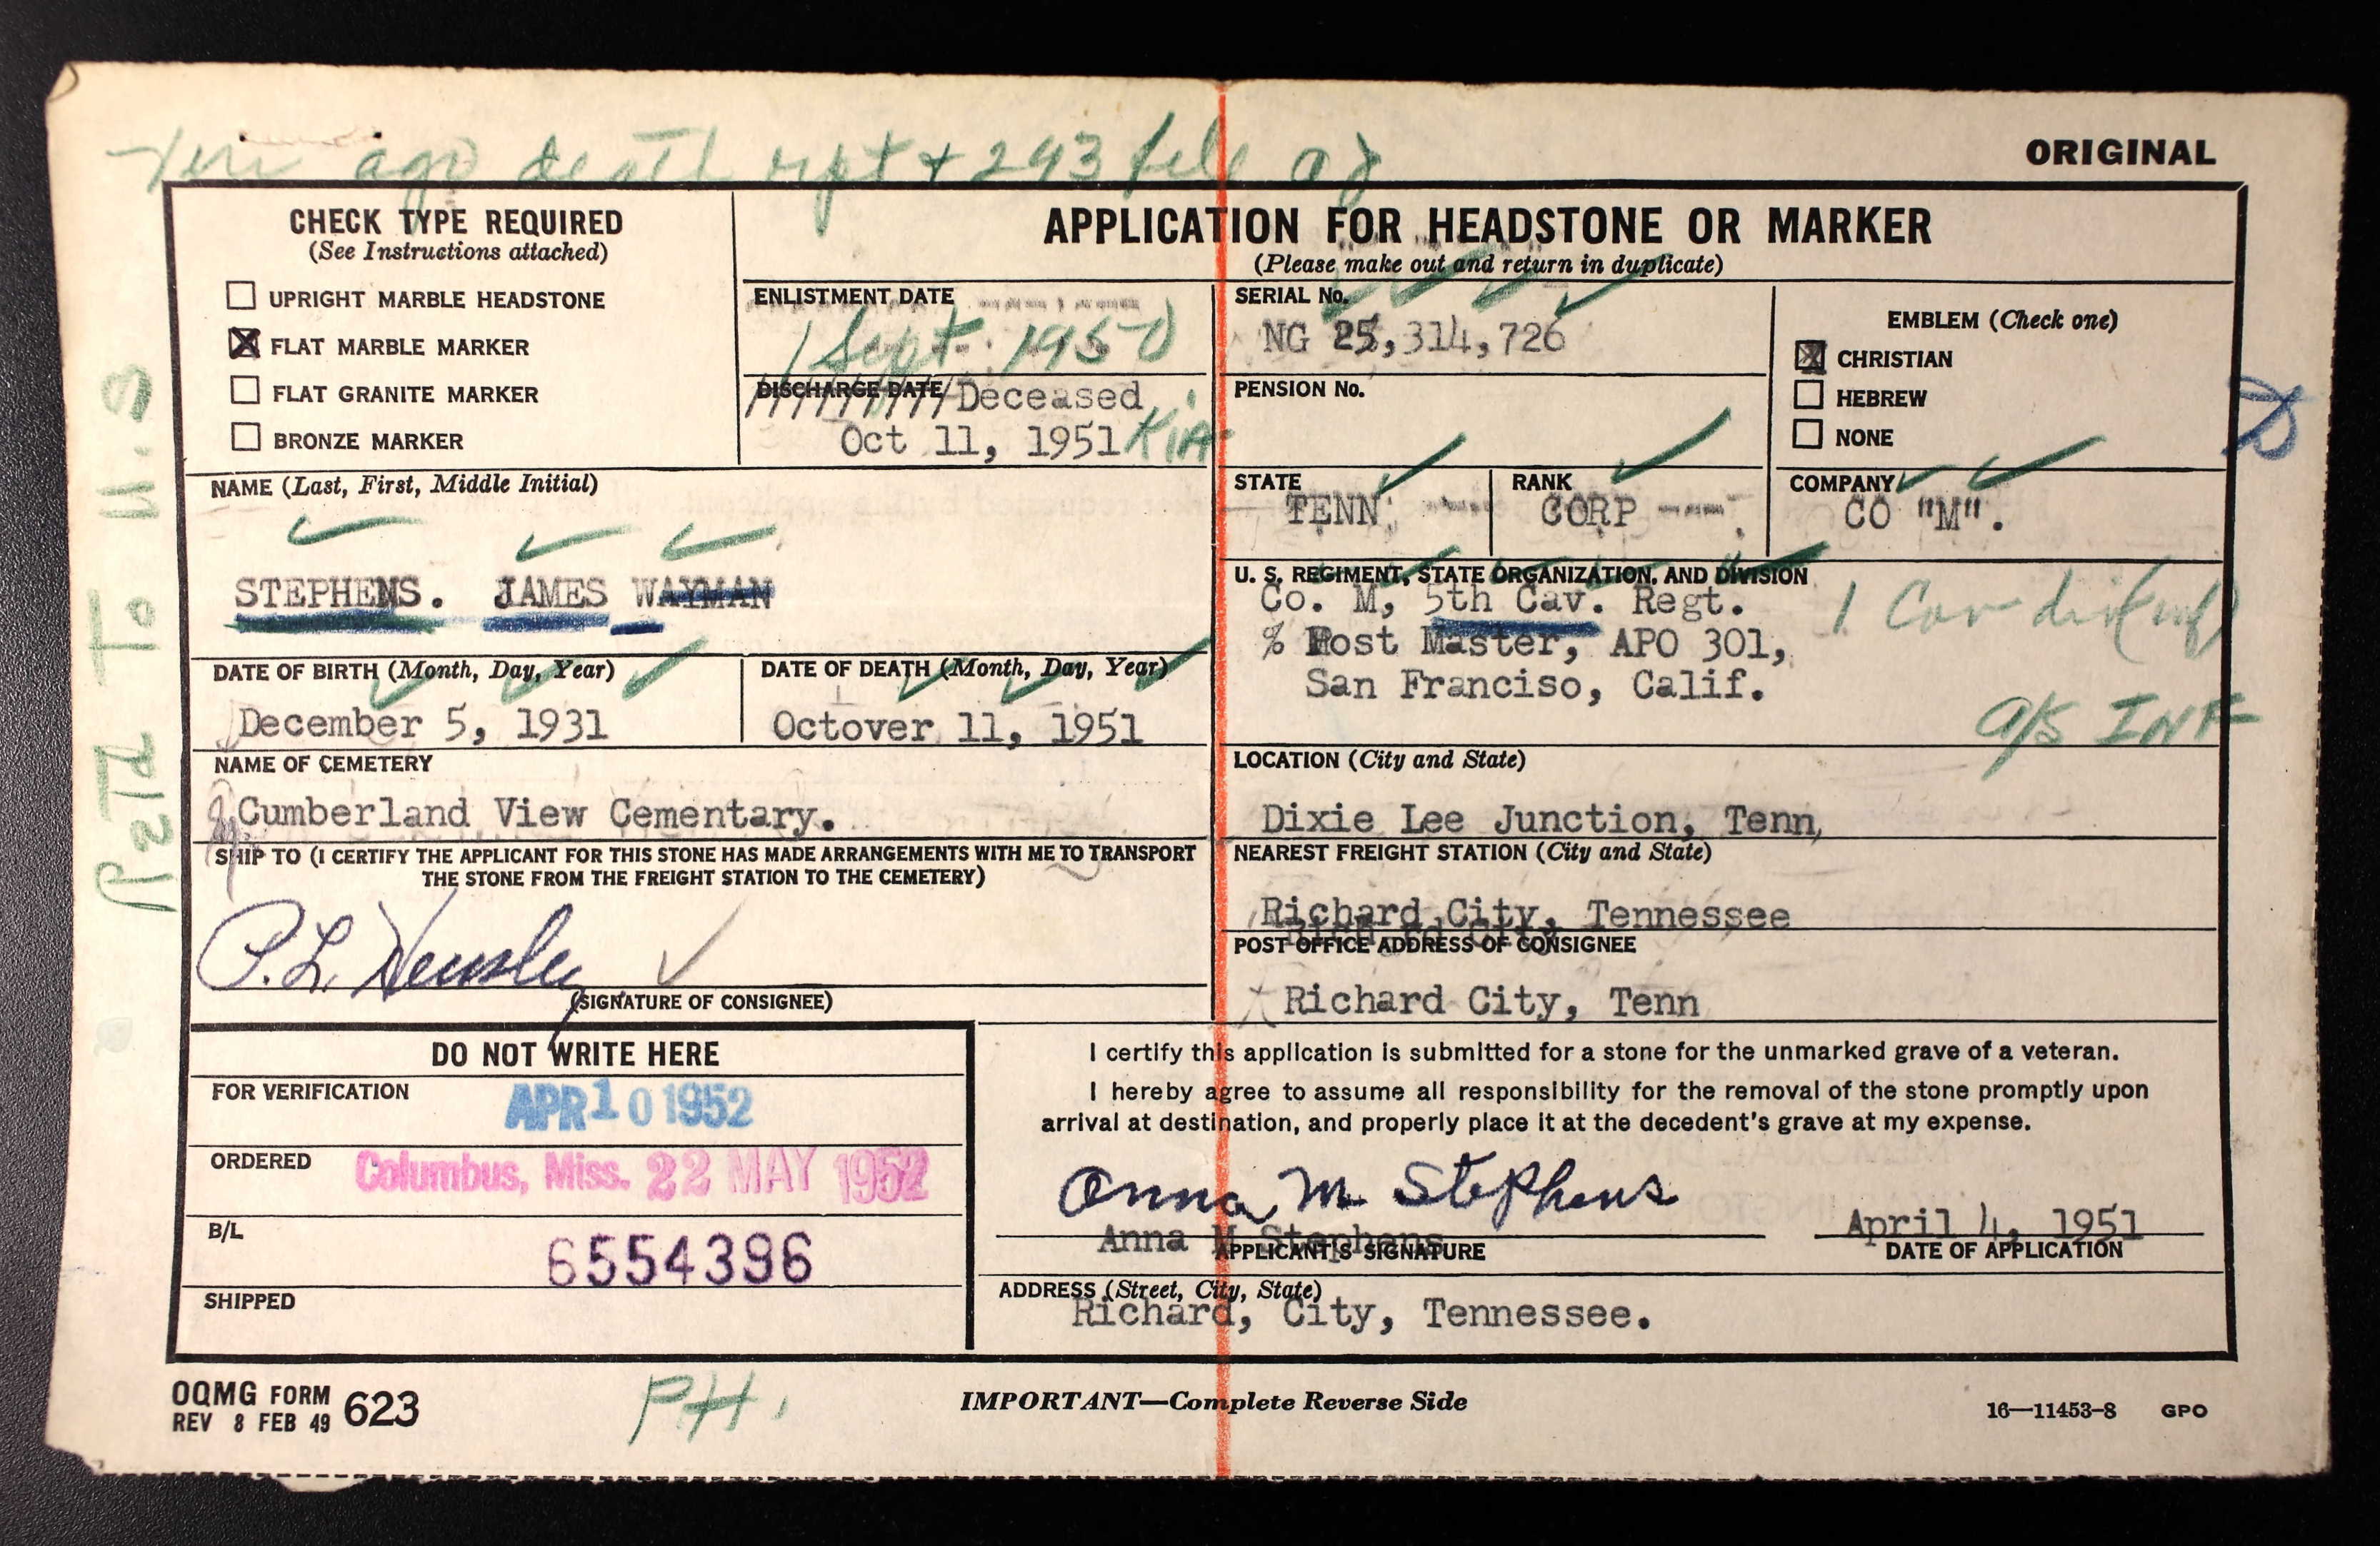 Veri ago death rpt + 293 file
ORIGINAL
CHECK TYPE REQUIRED
(See Instructions attached)
UPRIGHT MARBLE HEADSTONE
FLAT MARBLE MARKER
FLAT GRANITE MARKER
BRONZE MARKER
APPLICATION FOR HEADSTONE OR MARKER
(Please make out and return in duplicate)
ENLISTMENT DATE
1 Sept. 1950
DISCHARGE DATE Deceased
Oct 11, 1951 KIA
SERIAL No.
NG 25,314,726
PENSION No.
EMBLEM (Check one)
CHRISTIAN
HEBREW
NONE
NAME (Last, First, Middle Initial)
STEPHENS. JAMES WAYMAN
STATE
TENN
RANK
CORP
COMPANY
CO "M".
U. S. REGIMENT, STATE ORGANIZATION, AND DIVISION
Co. M, 5th Cav. Regt.
% Post Master, APO 301,
San Franciso, Calif.
1 Cav div (inf)
a/s INF
DATE OF BIRTH (Month, Day, Year)
December 5, 1931
DATE OF DEATH (Month, Day, Year)
Octover 11, 1951
NAME OF CEMETERY
Cumberland View Cementary.
LOCATION (City and State)
Dixie Lee Junction, Tenn,
SHIP TO (I CERTIFY THE APPLICANT FOR THIS STONE HAS MADE ARRANGEMENTS WITH ME TO TRANSPORT
THE STONE FROM THE FREIGHT STATION TO THE CEMETERY)
P.L. Hensley
(SIGNATURE OF CONSIGNEE)
NEAREST FREIGHT STATION (City and State)
Richard City, Tennessee
POST OFFICE ADDRESS OF CONSIGNEE
Richard City, Tenn
DO NOT WRITE HERE
FOR VERIFICATION
APR 10 1952
ORDERED
Columbus, Miss. 22 MAY 1952
B/L
6554396
SHIPPED
I certify this application is submitted for a stone for the unmarked grave of a veteran.
I hereby agree to assume all responsibility for the removal of the stone promptly upon
arrival at destination, and properly place it at the decedent's grave at my expense.
Anna M Stephens
Anna M Stephens
APPLICANT'S SIGNATURE
April 4, 1951
DATE OF APPLICATION
ADDRESS (Street, City, State)
Richard, City, Tennessee.
OQMG FORM 623
REV 8 FEB 49
PH.
IMPORTANT—Complete Reverse Side
16—11453-8 GPO
Retd To U.S
D